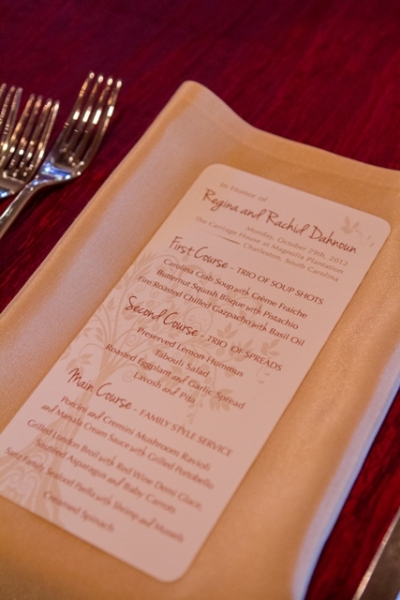 in Honor of
Regina and Rachid Dahnoun
Monday, October 29th, 2012
The Carriage House at Magnolia Plantation
Charleston, South Carolina
First Course - TRIO OF SOUP SHOTS
Carolina Crab Soup with Crème Fraiche
Butternut Squash Bisque with Pistachio
Fire Roasted Chilled Gazpacho with Basil Oil
Second Course - TRIO OF SPREADS
Preserved Lemon Hummus
Tabouli Salad
Roasted Eggplant and Garlic Spread
Lavosh and Pita
Main Course - FAMILY STYLE SERVICE
Porcini and Cremini Mushroom Ravioli
and Marsala Cream Sauce with Grilled Portobello
Grilled London Broil with Red Wine Demi Glace,
Sautéed Asparagus and Baby Carrots
Family Seafood Paella with Shrimp and Mussels
Creamed Spinach